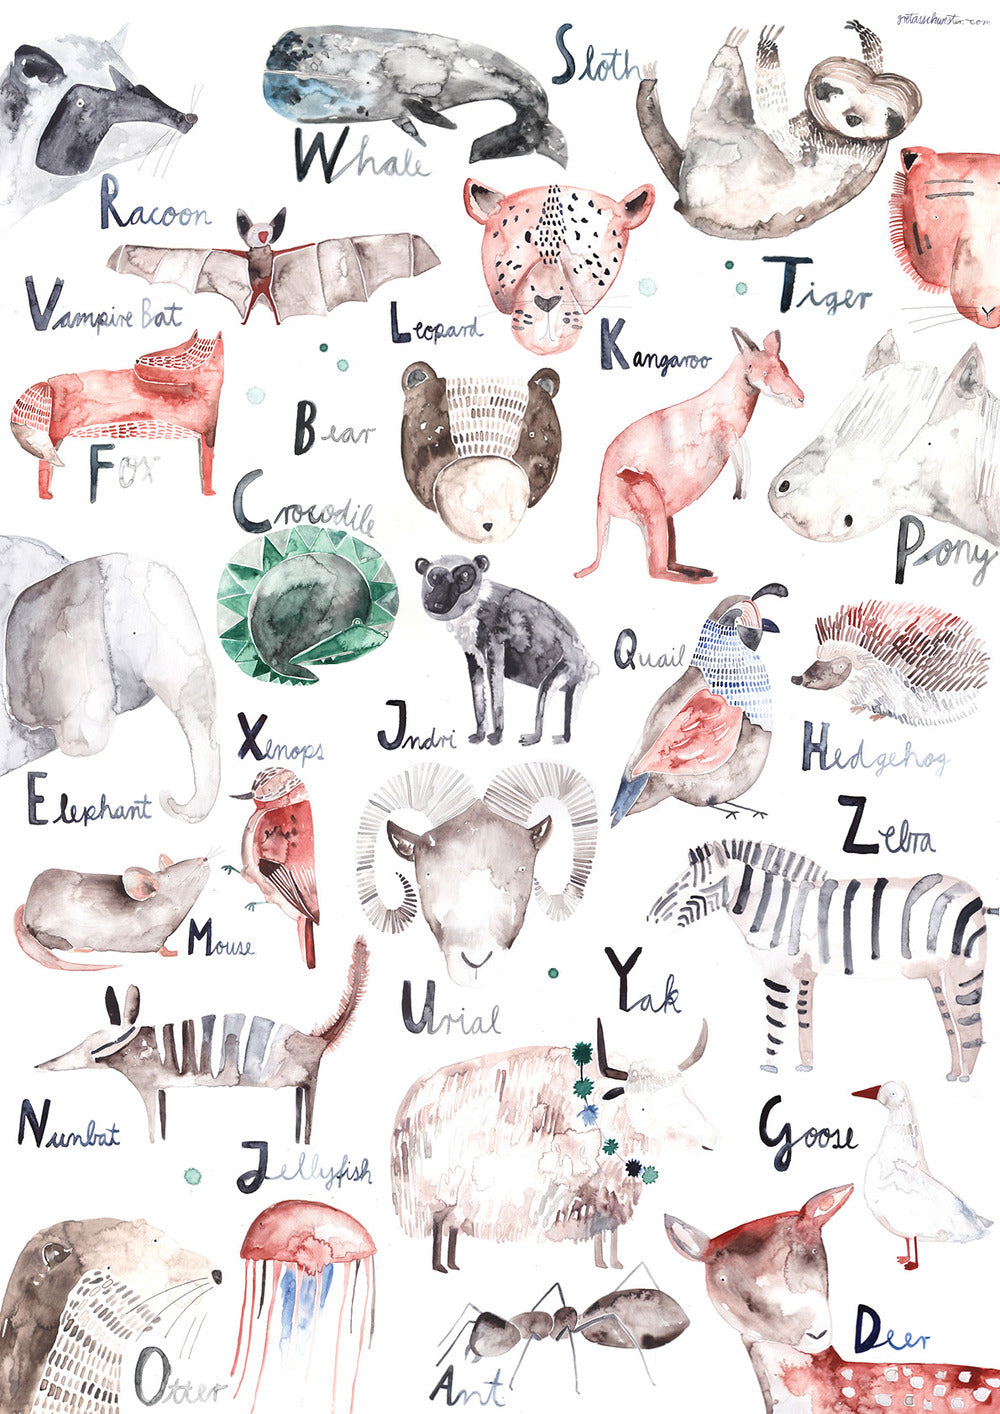 gretasschwester.com
Sloth
Whale
Racoon
Vampire Bat
Leopard
Tiger
Kangaroo
Fox
Bear
Crocodile
Pony
Quail
Hedgehog
Xenops
Indri
Elephant
Zebra
Mouse
Urial
Yak
Nunbat
Jellyfish
Goose
Otter
Ant
Deer